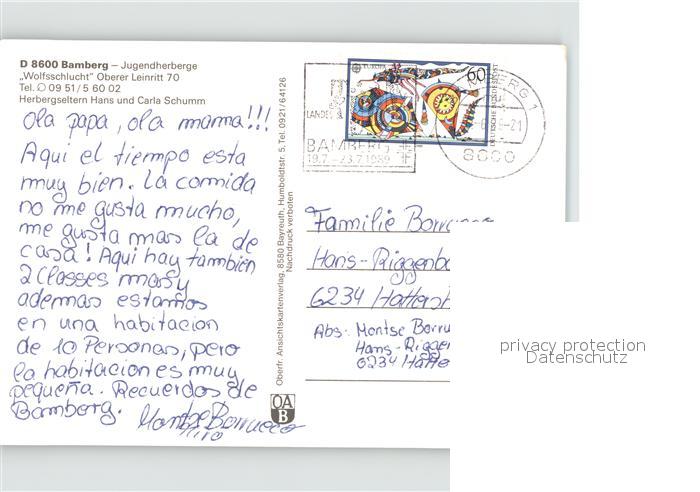 D 8600 Bamberg – Jugendherberge
„Wolfsschlucht" Oberer Leinritt 70
Tel. 09 51 / 5 60 02
Herbergseltern Hans und Carla Schumm
Ola papa, ola mama!!!
Aqui el tiempo esta
muy bien. La comida
no me gusta mucho,
me gusta mas la de
casa! Aqui hay tambien
2 Classes mas y
ademas estamos
en una habitacion
de 10 Personas, pero
la habitacion es muy
pequeña. Recuerdos de
Bamberg.
Oberfr. Ansichtskartenverlag, 8580 Bayreuth, Humboldtstr. 5, Tel. 0921/64126
Nachdruck verboten
OA
B
EUROPA
60
DEUTSCHE BUNDESPOST
LANDES
BAMBERG
19.7.–23.7.1989
BERG 1
-21
8600
Familie
Hans-
6234
Abs. Montse
Hans-
6234
privacy protection
Datenschutz